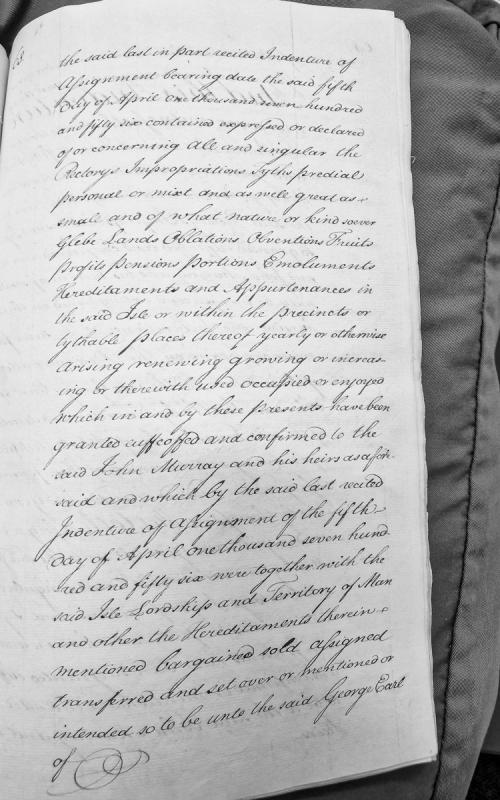 63.
the said last in part recited Indenture of
Assignment bearing date the said fifth
Day of April one thousand seven hundred
and fifty six contained expressed or declared
of or concerning All and singular the
Rectorys Impropriations Tyths predial
personal or mixt and as well great as
small and of what nature or kind soever
Glebe Lands Oblations Obventions Fruits
Profits Pensions Portions Emoluments
Hereditaments and Appurtenances in
the said Isle or within the precincts or
tythable places thereof yearly or otherwise
Arising renewing growing or increas-
ing or therewith used occupied or enjoyed
which in and by these presents have been
granted enffeoffed and confirmed to the
said John Murray and his heirs as afore-
said and which by the said last recited
Indenture of Assignment of the fifth
Day of April one thousand seven hund
red and fifty six were together with the
said Isle Lordships and Territory of Man
and other the Hereditaments therein
mentioned bargained sold assigned
transferred and set over or mentioned or
intended so to be unto the said George Earl
of